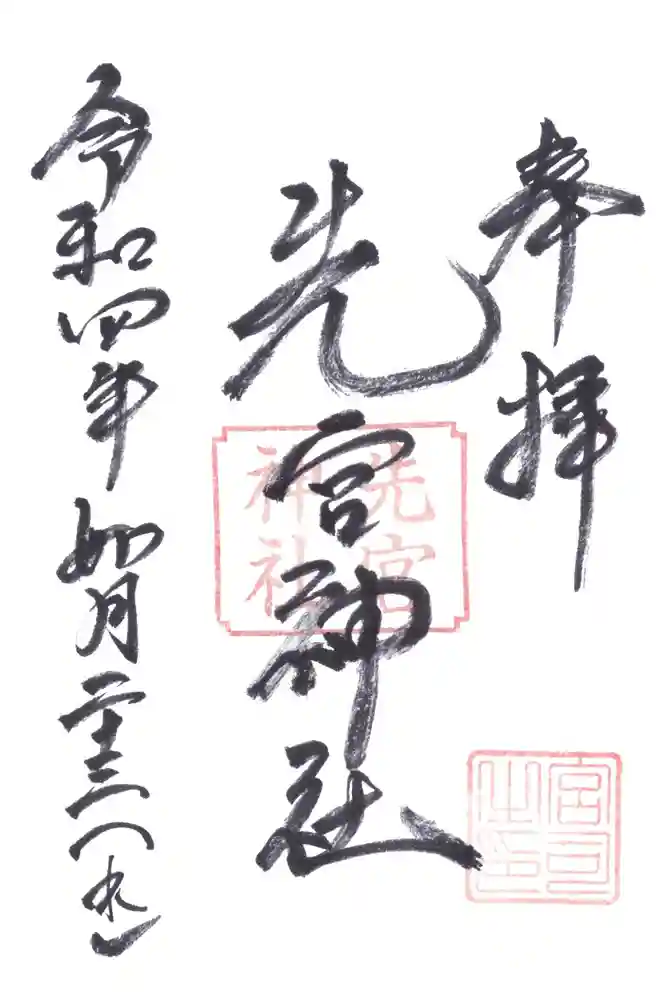 奉拝
先宮神社
先宮
神社
宮司
之印
令和四年 如月二十三(水)